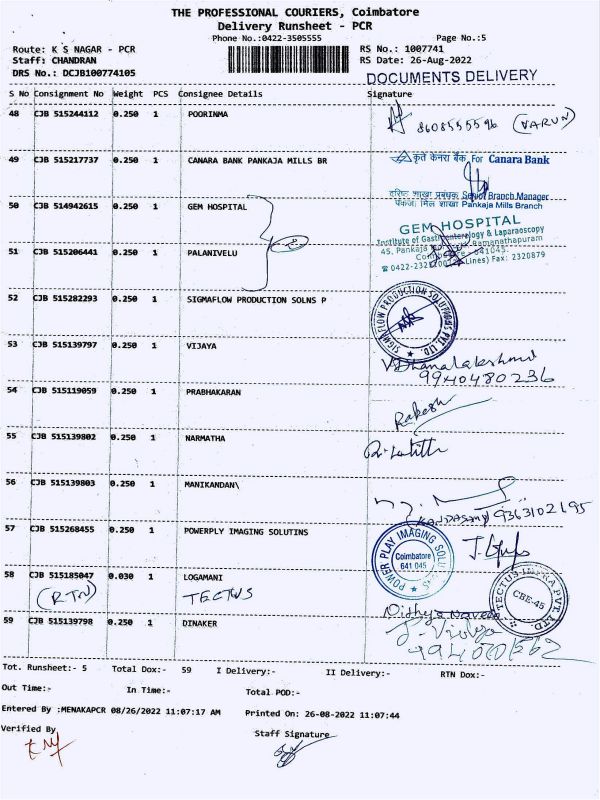 THE PROFESSIONAL COURIERS, Coimbatore
Delivery Runsheet - PCR
Phone No.:0422-3505555 Page No.:5
Route: K S NAGAR - PCR RS No.: 1007741
Staff: CHANDRAN RS Date: 26-Aug-2022
DRS No.: DCJB100774105 DOCUMENTS DELIVERY
S No Consignment No Weight PCS Consignee Details Signature
48 CJB 515244112 0.250 1 POORINMA 8608555596 (VARUN)
49 CJB 515217737 0.250 1 CANARA BANK PANKAJA MILLS BR कृते केनरा बैंक For Canara Bank
वरिष्ठ शाखा प्रबंधक Senior Branch Manager
पंकजा मिल शाखा Pankaja Mills Branch
50 CJB 514942615 0.250 1 GEM HOSPITAL GEM HOSPITAL
Institute of Gastroenterology & Laparaoscopy
45, Pankaja Ramanathapuram
Coimbatore - 641045.
51 CJB 515206441 0.250 1 PALANIVELU Lines) Fax: 2320879
52 CJB 515282293 0.250 1 SIGMAFLOW PRODUCTION SOLNS P SIGMAFLOW PRODUCTION SOLUTIONS PVT. LTD.
53 CJB 515139797 0.250 1 VIJAYA Dhanalakshmi
9940480236
54 CJB 515119059 0.250 1 PRABHAKARAN Rakesh
55 CJB 515139802 0.250 1 NARMATHA
56 CJB 515139803 0.250 1 MANIKANDAN\
KANDASAMY 9363102195
57 CJB 515268455 0.250 1 POWERPLY IMAGING SOLUTINS POWER PLAY IMAGING SOLUTIONS Coimbatore 641 045
58 CJB 515185047 0.030 1 LOGAMANI TECTUS INFRA PVT LTD CBE-45
(RTN) TECTUS
Nithya Naveen
59 CJB 515139798 0.250 1 DINAKER
Tot. Runsheet:- 5 Total Dox:- 59 I Delivery:- II Delivery:- RTN Dox:-
Out Time:- In Time:- Total POD:-
Entered By :MENAKAPCR 08/26/2022 11:07:17 AM Printed On: 26-08-2022 11:07:44
Verified By Staff Signature